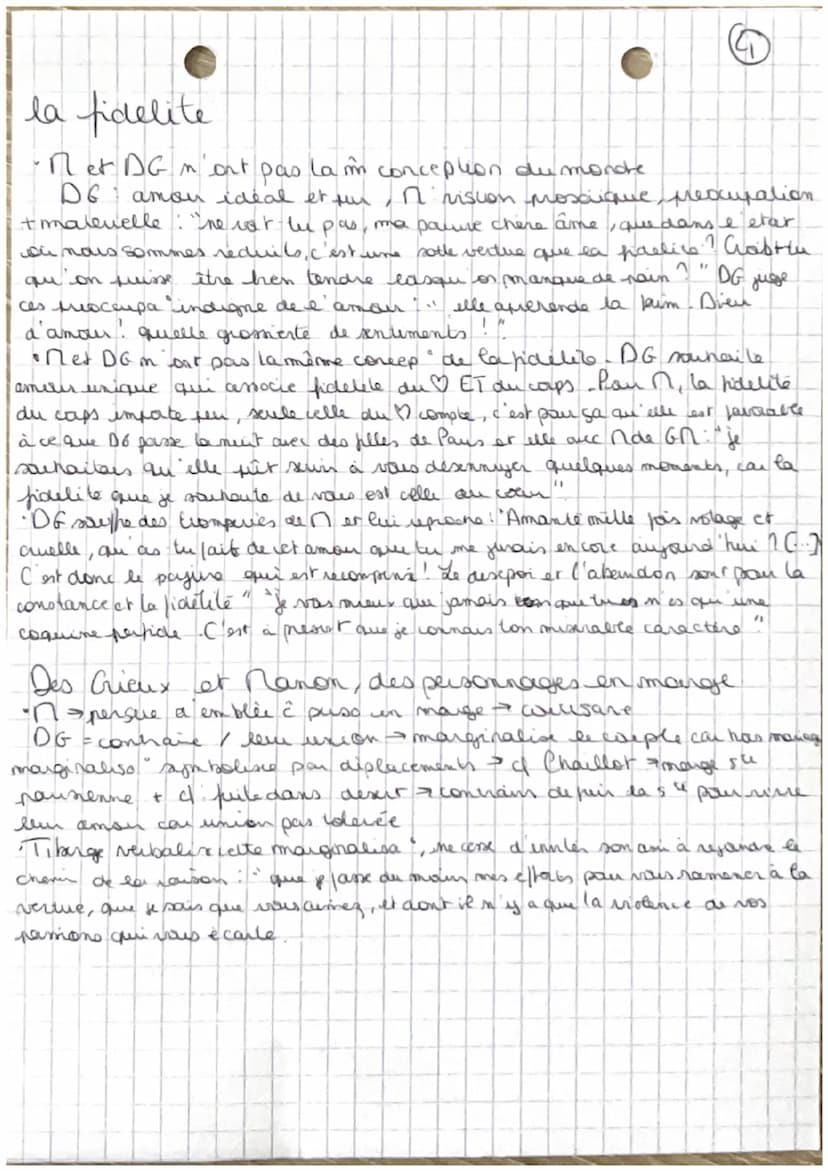 4
la fidelite
· M et DG n'ont pas la m̂ conception du monde
DG : amour idéal et pur, M : vision prosaïque, préocupation
+ matérielle : "ne vois-tu pas, ma pauvre chère âme, que dans l'état
où nous sommes réduits, c'est une sotte vertue que la fidélité ? Crois-tu
qu'on puisse être bien tendre lorsqu'on manque de pain ?" DG juge
ces préoccupa° indigne de l'amour : "elle apprende la faim. Dieu
d'amour ! quelle grossierté de sentiments !"
· M et DG n'ont pas la même concep° de la fidélité. DG souhaite
amour unique qui associe fidelité du ♡ ET du corps. Pour M, la fidelité
du corps importe peu, seule celle du ♡ compte, c'est pour ça qu'elle est favorable
à ce que DG passe la nuit avec des filles de Paris et elle avec M de GM : "je
souhaitais qu'elle pût servir à vous désennuyer quelques moments, car la
fidelité que je souhaite de vous est celle du coeur"
· DG souffre des tromperies de M et lui reproche : "Amante mille fois volage et
cruelle, qu'as tu fait de cet amour que tu me jurais encore aujourd'hui ? [...]
C'est donc le parjure qui est récompensé ! Le desespoir et l'abandon sont pour la
constance et la fidélité" "je vois mieux que jamais que tu n'es qu'une
coquine perfide. C'est à présent que je connais ton misérable caractère"
Des Grieux et Manon, des personnages en marge
· M → persue d'emblée ĉ perso en marge → courtisane
DG = contraire / leur union → marginalise le couple car hors mariage
marginalisa° symbolisée par déplacements → cf Chaillot → marge sté
parisienne + cf. fuite dans désert → contraints de fuir la sté pour vivre
leur amour car union pas tolérée
· Tiberge verbalise cette marginalisa°, ne cesse d'inviter son ami à rejoindre le
chemin de la raison : "que je fasse du moins mes efforts pour vous ramener à la
vertue, que je sais que vous aimez, et dont il n'y a que la violence de vos
passions qui vous écarte.